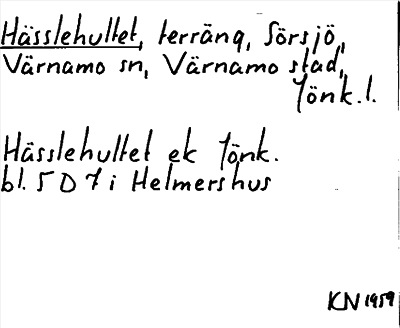 Hässlehultet, terräng, Sörsjö,
Värnamo sn, Värnamo stad,
Jönk.l.
Hässlehultet ek Jönk.
bl. 5 D 7 i Helmershus
KN 1959